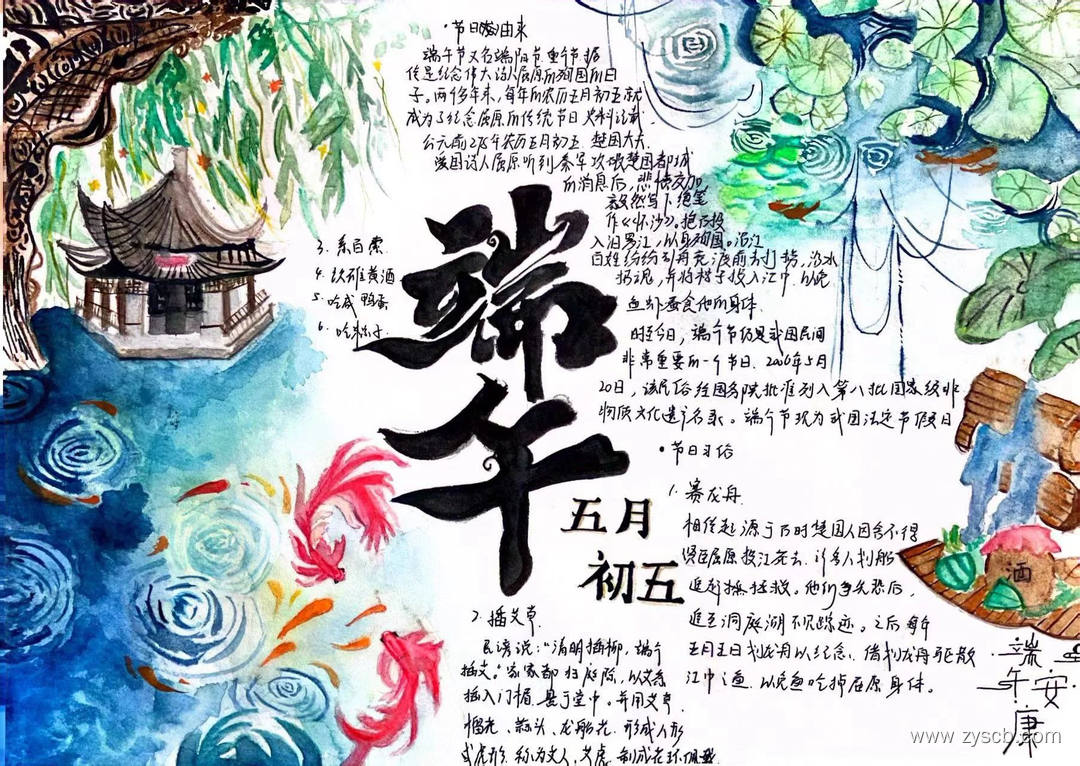 ·节日的由来
端午节又名端阳节、重午节,据
传是纪念伟大诗人屈原的殉国的日
子。两千多年来,每年的农历五月初五就
成为了纪念屈原的传统节日。史料记载
公元前278年农历五月初五,楚国大夫、
爱国诗人屈原听到秦军攻破楚国都城
的消息后,悲愤交加
毅然写下绝笔
作《怀沙》。抱石投
入汨罗江,以身殉国。沿江
百姓纷纷引舟竞渡前去打捞,沿水
招魂,并将粽子投入江中,以免
鱼虾蚕食他的身体
时至今日,端午节仍是我国民间
非常重要的一个节日。2006年5月
20日,该民俗经国务院批准列入第一批国家级非
物质文化遗产名录。端午节现为我国法定节假日
·节日习俗
1. 赛龙舟
相传起源于古时楚国人因舍不得
贤臣屈原投江死去,许多人划船
追赶拯救。他们争先恐后,
追至洞庭湖不见踪迹。之后每年
五月五日划龙舟以纪念。借划龙舟驱散
江中之鱼,以免鱼吃掉屈原身体。
2. 插艾草
民谚说:“清明插柳,端午
插艾。”家家都扫庭除,以艾条
插入门楣,悬于堂中。并用艾草、
榴花、蒜头、龙船花,形成人形
或虎形,称为艾人、艾虎,制成花环佩
3. 系百索
4. 饮雄黄酒
5. 吃咸鸭蛋
6. 吃粽子
端午
五月
初五
酒
端午
安康
www.zyscb.com